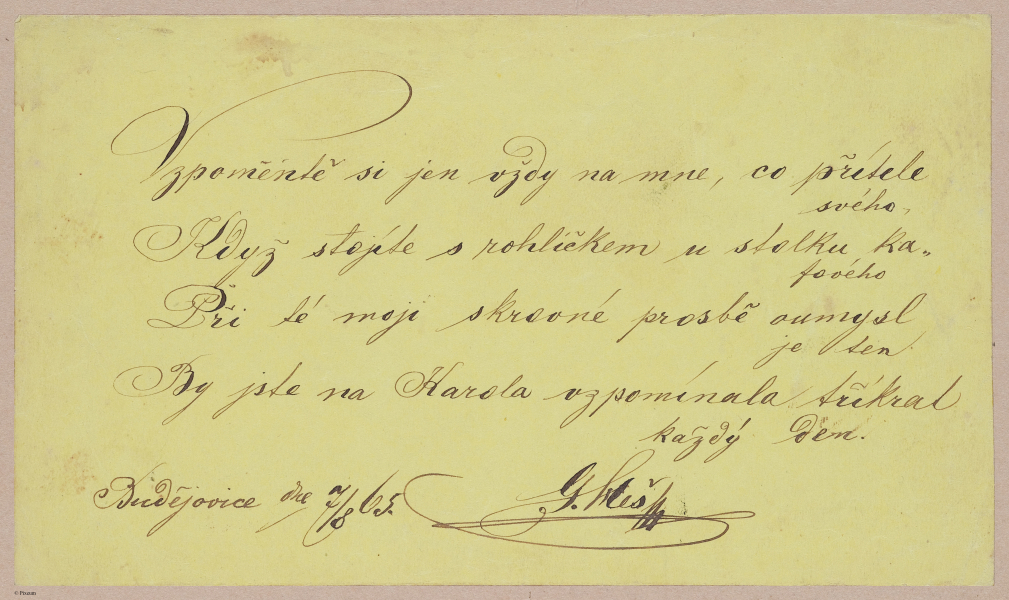 Vzpoměntě si jen vždy na mne, co přítele
svého,
Když stojíte s rohlíčkem u stolku ka„
fového
Při té moji skrovné prosbě oumysl
je ten
By jste na Karola vzpomínala tříkrat
každý den.
Budějovice dne 7/8 65.
© Pixum